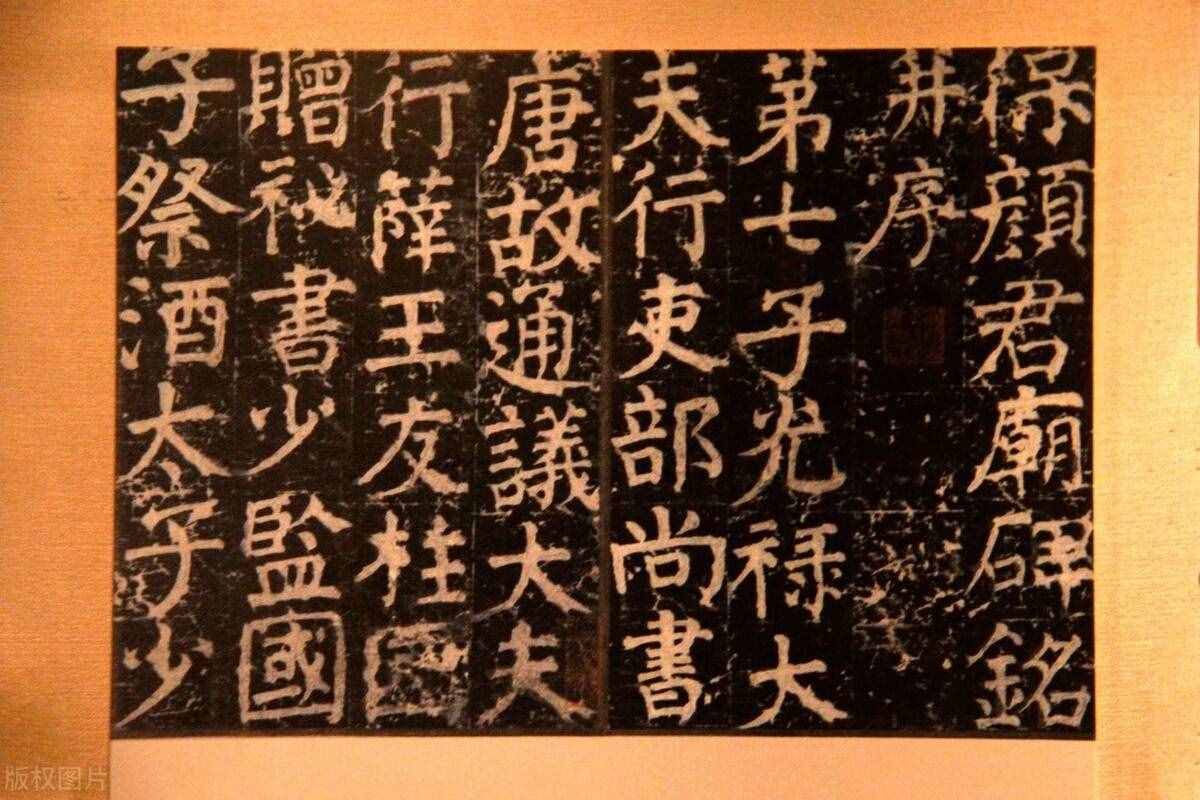 保顏君廟碑銘
并序
第七子光祿大
夫行吏部尚書
唐故通議大夫
行薛王友柱國
贈祕書少監國
子祭酒太子少
版权图片